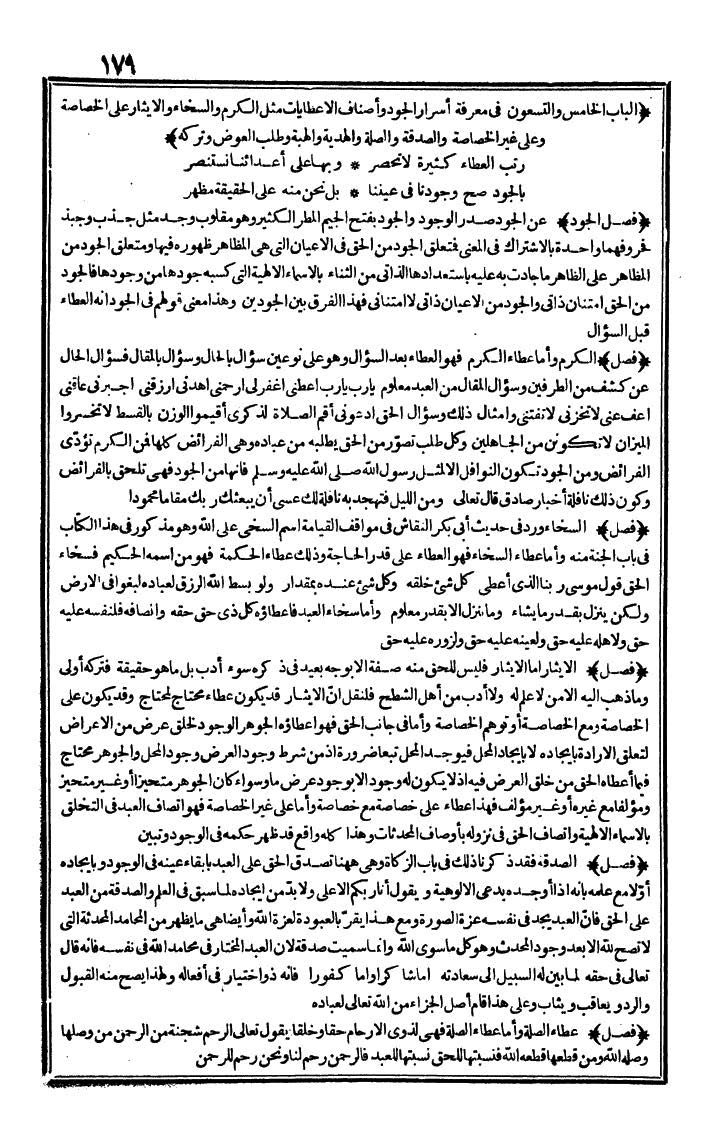 ١٧٩
﴿الباب الخامس والتسعون فى معرفة أسرار الجود وأصناف الاعطايات مثل الكرم والسخاء والايثار على الخصاصة
وعلى غير الخصاصة والصدقة والصلة والهدية والهبة وطلب العوض وتركه﴾
رتب العطاء كثيرة لا تحصر * وبها على أعدائنا نستنصر
بالجود صح وجودنا فى عيننا * بل نحن منه على الحقيقة مظهر
﴿فصل الجود﴾ عن الجود صدر الوجود والجود بفتح الجيم المطر الكثير وهو مقلوب وجد مثل جذب وجبذ
فحروفهما واحدة بالاشتراك فى المعنى فتعلق الجود من الحق فى الاعيان التى هى المظاهر ظهوره فيها ومتعلق الجود من
المظاهر على الظاهر ما جادت به عليه باستعدادها الذاتى من الثناء بالاسماء الالهية التى كسبه جودها من وجودها فالجود
من الحق امتنان ذاتى والجود من الاعيان ذاتى لا امتنانى فهذا الفرق بين الجودين وهذا معنى قولهم فى الجود انه العطاء
قبل السؤال
﴿فصل﴾ الكرم وأما عطاء الكرم فهو العطاء بعد السؤال وهو على نوعين سؤال بالحال وسؤال بالمقال فسؤال الحال
عن كشف من الطرفين وسؤال المقال من العبد معلوم يارب يارب اعطنى اغفر لى ارحمنى اهدنى ارزقنى اجبرنى عافنى
اعف عنى لا تخزنى لا تفتنى وامثال ذلك وسؤال الحق ادعونى أقم الصلاة لذكرى أقيموا الوزن بالقسط لا تخسروا
الميزان لا تكونن من الجاهلين وكل طلب تصوّر من الحق يطلبه من عباده وهى الفرائض كلها فمن الكرم تؤدّى
الفرائض ومن الجود تكون النوافل الا لمثل رسول الله صلى الله عليه وسلم فانها من الجود فهى تلحق بالفرائض
وكون ذلك نافلة أخبار صادق قال تعالى ومن الليل فتهجد به نافلة لك عسى أن يبعثك ربك مقاما محمودا
﴿فصل﴾ السخاء ورد فى حديث أبى بكر النقاش فى مواقف القيامة اسم السخى على الله وهو مذكور فى هذا الكتاب
فى باب الجنة منه وأما عطاء السخاء فهو العطاء على قدر الحاجة وذلك عطاء الحكمة فهو من اسمه الحكيم فسخاء
الحق قول موسى ربنا الذى أعطى كل شئ خلقه وكل شئ عنده بمقدار ولو بسط الله الرزق لعباده لبغوا فى الارض
ولكن ينزل بقدر ما يشاء وما ننزل الا بقدر معلوم وأما سخاء العبد فاعطاؤه كل ذى حق حقه وانصافه فلنفسه عليه
حق ولاهله عليه حق ولعينه عليه حق ولزوره عليه حق
﴿فصل﴾ الايثار اما الايثار فليس للحق منه صفة الا بوجه بعيد فى ذكره سوء أدب بل ما هو حقيقة فتركه أولى
وما ذهب اليه الا من لا علم له ولا أدب من أهل الشطح فلنقل انّ الايثار قد يكون عطاء محتاج لمحتاج وقد يكون على
الخصاصة ومع الخصاصة أو توهم الخصاصة وأما فى جانب الحق فهو اعطاؤه الجوهر الوجود لخلق عرض من الاعراض
لتعلق الارادة بايجاده لا بايجاد المحل فيوجد المحل تبعا ضرورة اذ من شرط وجود العرض وجود المحل والجوهر محتاج
فيما أعطاه الحق من خلق العرض فيه اذ لا يكون له وجود الا بوجود عرض ما وسواء كان الجوهر متحيزا أو غير متحيز
ومؤلفا مع غيره أو غير مؤلف فهذا عطاء على خصاصة مع خصاصة وأما على غير الخصاصة فهو اتصاف العبد فى التخلق
بالاسماء الالهية واتصاف الحق فى نزوله بأوصاف المحدثات وهذا كله واقع قد ظهر حكمه فى الوجود وتبين
﴿فصل﴾ الصدقة فقد ذكرنا ذلك فى باب الزكاة وهى ههنا تصدق الحق على العبد بابقاء عينه فى الوجود وبايجاده
أوّلا مع علمه بانه اذا أوجده يدعى الالوهية ويقول أنا ربكم الاعلى ولا بدّ من ايجاده لما سبق فى العلم والصدقة من العبد
على الحق فانّ العبد يجد فى نفسه عزة الصورة ومع هذا يقرّ بالعبودة لعزة الله وأيضا هى ما يظهر من المحامد المحدثة التى
لا تصح لله الا بعد وجود المحدث وهو كل ما سوى الله وانما سميت صدقة لان العبد المختار فى محامد الله فى نفسه فانه قال
تعالى فى حقه لما بين له السبيل الى سعادته اما شاكرا واما كفورا فانه ذو اختيار فى أفعاله ولهذا يصح منه القبول
والرد ويعاقب ويثاب وعلى هذا قام أصل الجزاء من الله تعالى لعباده
﴿فصل﴾ عطاء الصلة وأما عطاء الصلة فهى لذوى الارحام حقا وخلقا يقول تعالى الرحم شجنة من الرحمن من وصلها
وصله الله ومن قطعها قطعه الله فنسبتها للحق نسبتها للعبد فالرحمن رحم لنا ونحن رحم للرحمن